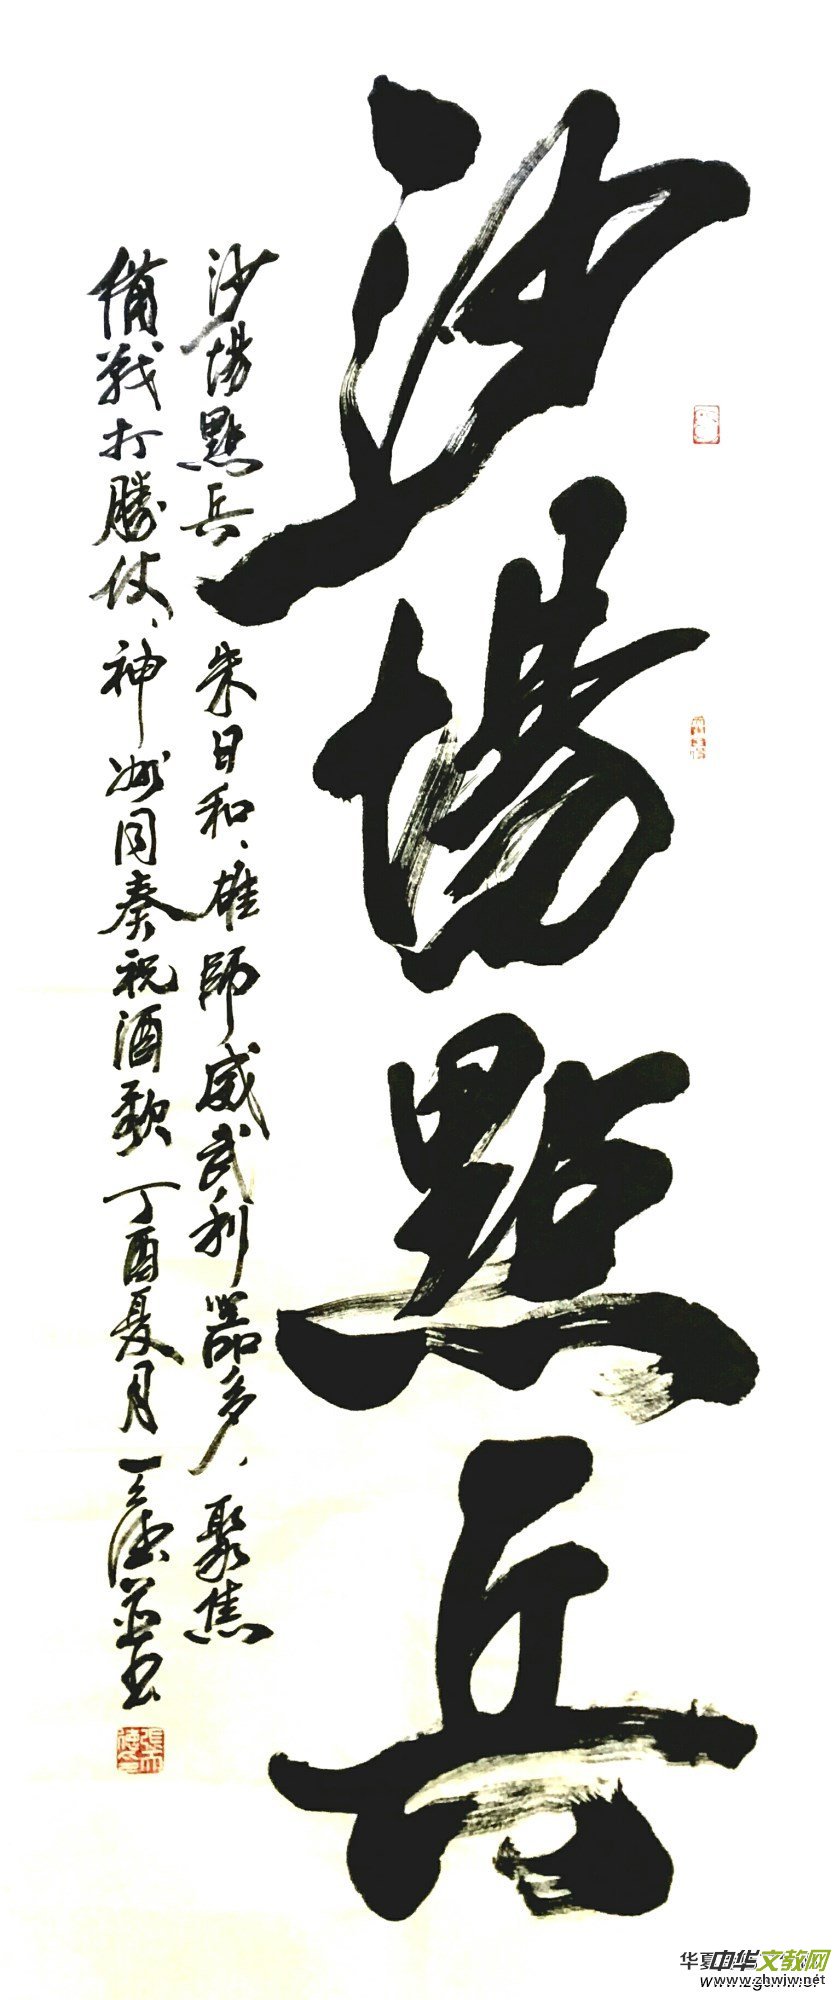 沙場點兵
沙場點兵 朱日和、雄師威武利器多、聚焦
備戰打勝仗、神州同奏祝酒歌 丁酉夏月 天德并书
中华文教网
www.zhwjw.net